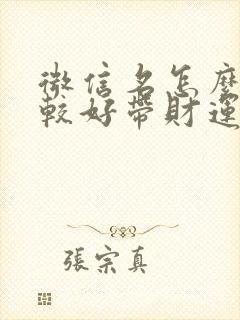 微信名怎麼
較好帶財運
張宗真